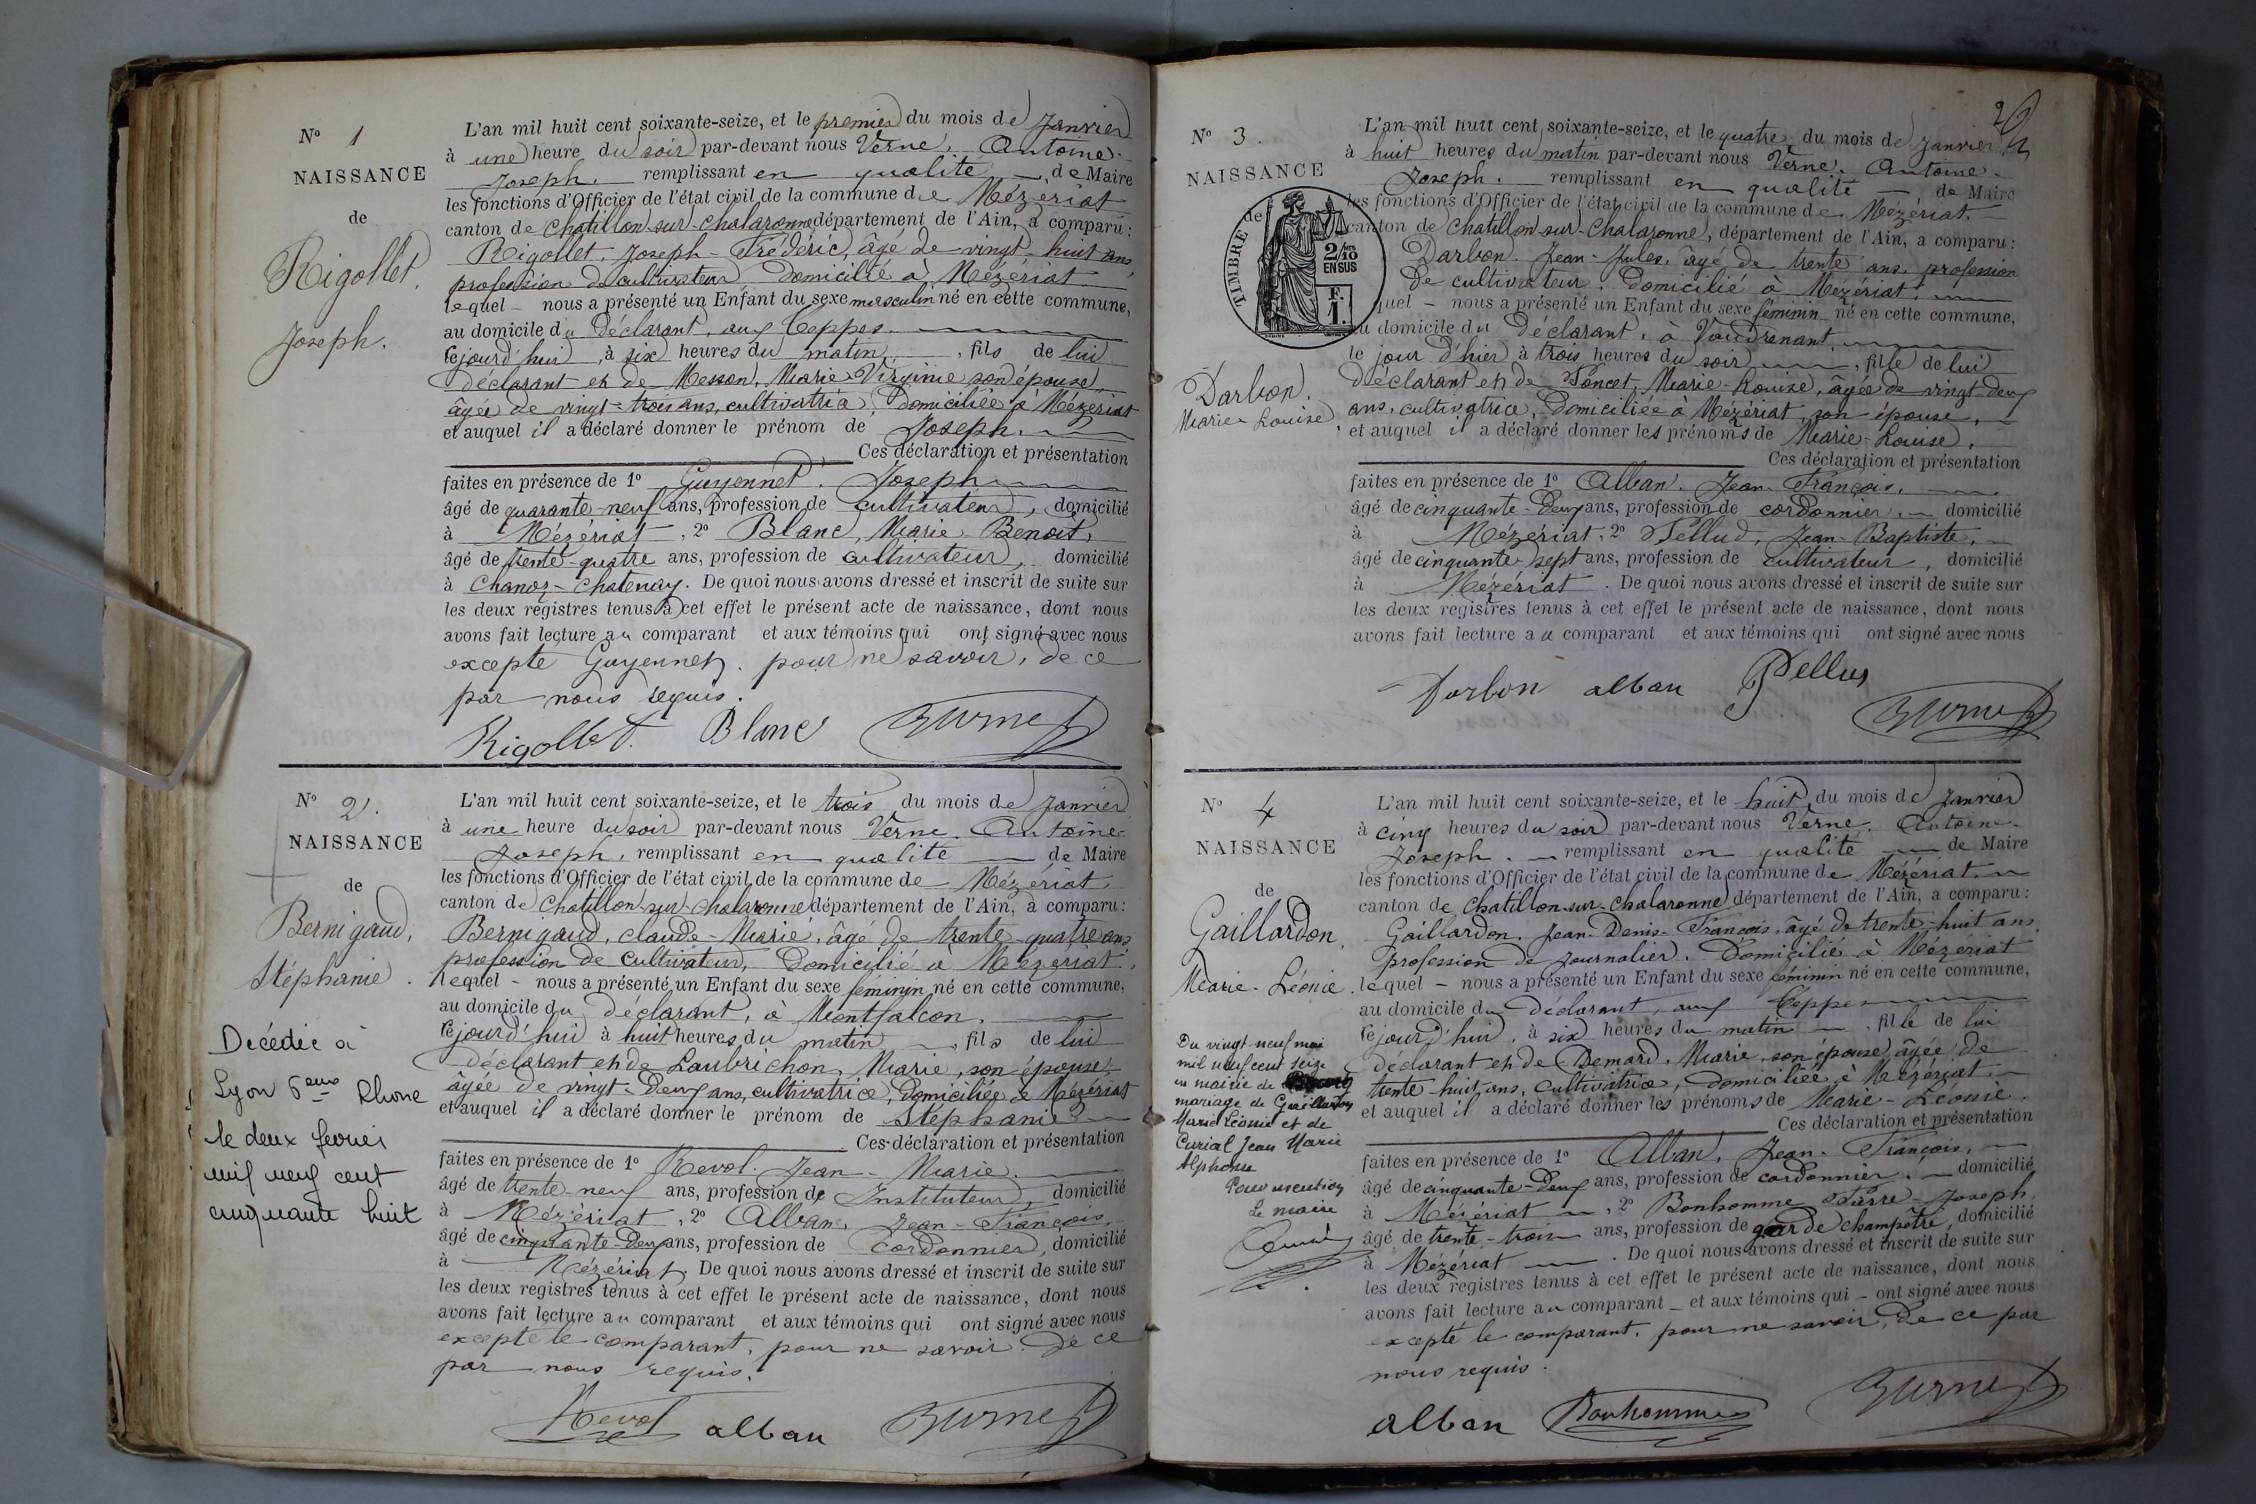 N° 1
NAISSANCE
de
Rigollet,
Joseph.
L'an mil huit cent soixante-seize, et le premier du mois de Janvier
à une heure du soir par-devant nous Verne, Antoine-
Joseph, remplissant en qualité de Maire
les fonctions d'Officier de l'état civil de la commune de Mézériat
canton de Chatillon-sur-Chalaronne département de l'Ain, a comparu :
Rigollet, Joseph-Frédéric, âgé de vingt huit ans,
profession de cultivateur, domicilié à Mézériat
lequel – nous a présenté un Enfant du sexe masculin né en cette commune,
au domicile du déclarant, aux Ceppes.
cejourd'hui, à six heures du matin, fils de lui
déclarant et de Messon, Marie-Virginie son épouse,
âgée de vingt-trois ans, cultivatrice, domiciliée à Mézériat
et auquel il a déclaré donner le prénom de Joseph.
Ces déclaration et présentation
faites en présence de 1° Guyennet, Joseph
âgé de quarante-neuf ans, profession de cultivateur, domicilié
à Mézériat, 2° Blanc, Marie Benoit,
âgé de trente-quatre ans, profession de cultivateur, domicilié
à Chanoz-Chatenay. De quoi nous avons dressé et inscrit de suite sur
les deux registres tenus à cet effet le présent acte de naissance, dont nous
avons fait lecture au comparant et aux témoins qui ont signé avec nous
excepté Guyennet, pour ne savoir, de ce
par nous requis.
Rigollet. Blanc Verne
N° 2.
NAISSANCE
de
Bernigaud,
Stéphanie.
Décédée à
Lyon 6eme Rhone
le deux fevrier
mil neuf cent
cinquante huit
L'an mil huit cent soixante-seize, et le trois du mois de Janvier
à une heure du soir par-devant nous Verne, Antoine-
Joseph, remplissant en qualité de Maire
les fonctions d'Officier de l'état civil de la commune de Mézériat
canton de Chatillon-sur-Chalaronne département de l'Ain, a comparu :
Bernigaud, Claude-Marie, âgé de trente-quatre ans
profession de cultivateur, domicilié à Mézériat,
lequel – nous a présenté un Enfant du sexe féminin né en cette commune,
au domicile du déclarant, à Montfalcon.
cejourd'hui à huit heures du matin, fils de lui
déclarant et de Laubrichon, Marie, son épouse,
âgée de vingt-deux ans, cultivatrice, domiciliée à Mézériat
et auquel il a déclaré donner le prénom de Stéphanie
Ces déclaration et présentation
faites en présence de 1° Revol, Jean-Marie.
âgé de trente-neuf ans, profession de Instituteur, domicilié
à Mézériat, 2° Alban, Jean-François,
âgé de cinquante-deux ans, profession de cordonnier, domicilié
à Mézériat. De quoi nous avons dressé et inscrit de suite sur
les deux registres tenus à cet effet le présent acte de naissance, dont nous
avons fait lecture au comparant et aux témoins qui ont signé avec nous
excepté le comparant, pour ne savoir de ce
par nous requis.
Revol alban Verne
N° 3.
NAISSANCE
de
TIMBRE
2/10
EN SUS
F.
1.
Darbon,
Marie Louise,
L'an mil huit cent soixante-seize, et le quatre du mois de Janvier
à huit heures du matin par-devant nous Verne, Antoine-
Joseph. remplissant en qualité de Maire
les fonctions d'Officier de l'état civil de la commune de Mézériat.
canton de Chatillon-sur-Chalaronne, département de l'Ain, a comparu :
Darbon, Jean-Jules, âgé de trente ans, profession
de cultivateur, domicilié à Mézériat,
quel – nous a présenté un Enfant du sexe féminin né en cette commune,
au domicile du déclarant, à Vaudrenant,
le jour d'hier à trois heures du soir, fille de lui
déclarant et de Poncet, Marie-Louise, âgée de vingt-deux
ans, cultivatrice, domiciliée à Mézériat, son épouse,
et auquel il a déclaré donner les prénoms de Marie-Louise,
Ces déclaration et présentation
faites en présence de 1° Alban, Jean-François,
âgé de cinquante-deux ans, profession de cordonnier, domicilié
à Mézériat, 2° Pellud, Jean-Baptiste,
âgé de cinquante-sept ans, profession de cultivateur, domicilié
à Mézériat. De quoi nous avons dressé et inscrit de suite sur
les deux registres tenus à cet effet le présent acte de naissance, dont nous
avons fait lecture au comparant et aux témoins qui ont signé avec nous
Darbon alban Pellus Verne
N° 4
NAISSANCE
de
Gaillardon,
Marie-Léonie.
Du vingt-neuf mai
mil neuf cent seize
en mairie de
mariage de Gaillardon
Marie Léonie et de
Curial Jean Marie
Alphonse
Pour mention
Le maire
L'an mil huit cent soixante-seize, et le huit du mois de Janvier
à cinq heures du soir par-devant nous Verne, Antoine-
Joseph. remplissant en qualité de Maire
les fonctions d'Officier de l'état civil de la commune de Mézériat.
canton de Chatillon-sur-Chalaronne département de l'Ain, a comparu :
Gaillardon, Jean-Denis-François, âgé de trente-huit ans,
profession de journalier, domicilié à Mézériat
lequel – nous a présenté un Enfant du sexe féminin né en cette commune,
au domicile du déclarant, aux Ceppes
cejourd'hui, à six heures du matin, fille de lui
déclarant et de Bernard, Marie, son épouse, âgée de
trente-huit ans, cultivatrice, domiciliée à Mézériat
et auquel il a déclaré donner les prénoms de Marie-Léonie,
Ces déclaration et présentation
faites en présence de 1° Alban, Jean-François,
âgé de cinquante-deux ans, profession de cordonnier, domicilié
à Mézériat, 2° Bonhomme Pierre-Joseph,
âgé de trente-trois ans, profession de garde champêtre, domicilié
à Mézériat. De quoi nous avons dressé et inscrit de suite sur
les deux registres tenus à cet effet le présent acte de naissance, dont nous
avons fait lecture au comparant – et aux témoins qui – ont signé avec nous
excepté le comparant, pour ne savoir, de ce par
nous requis.
alban Bonhomme Verne